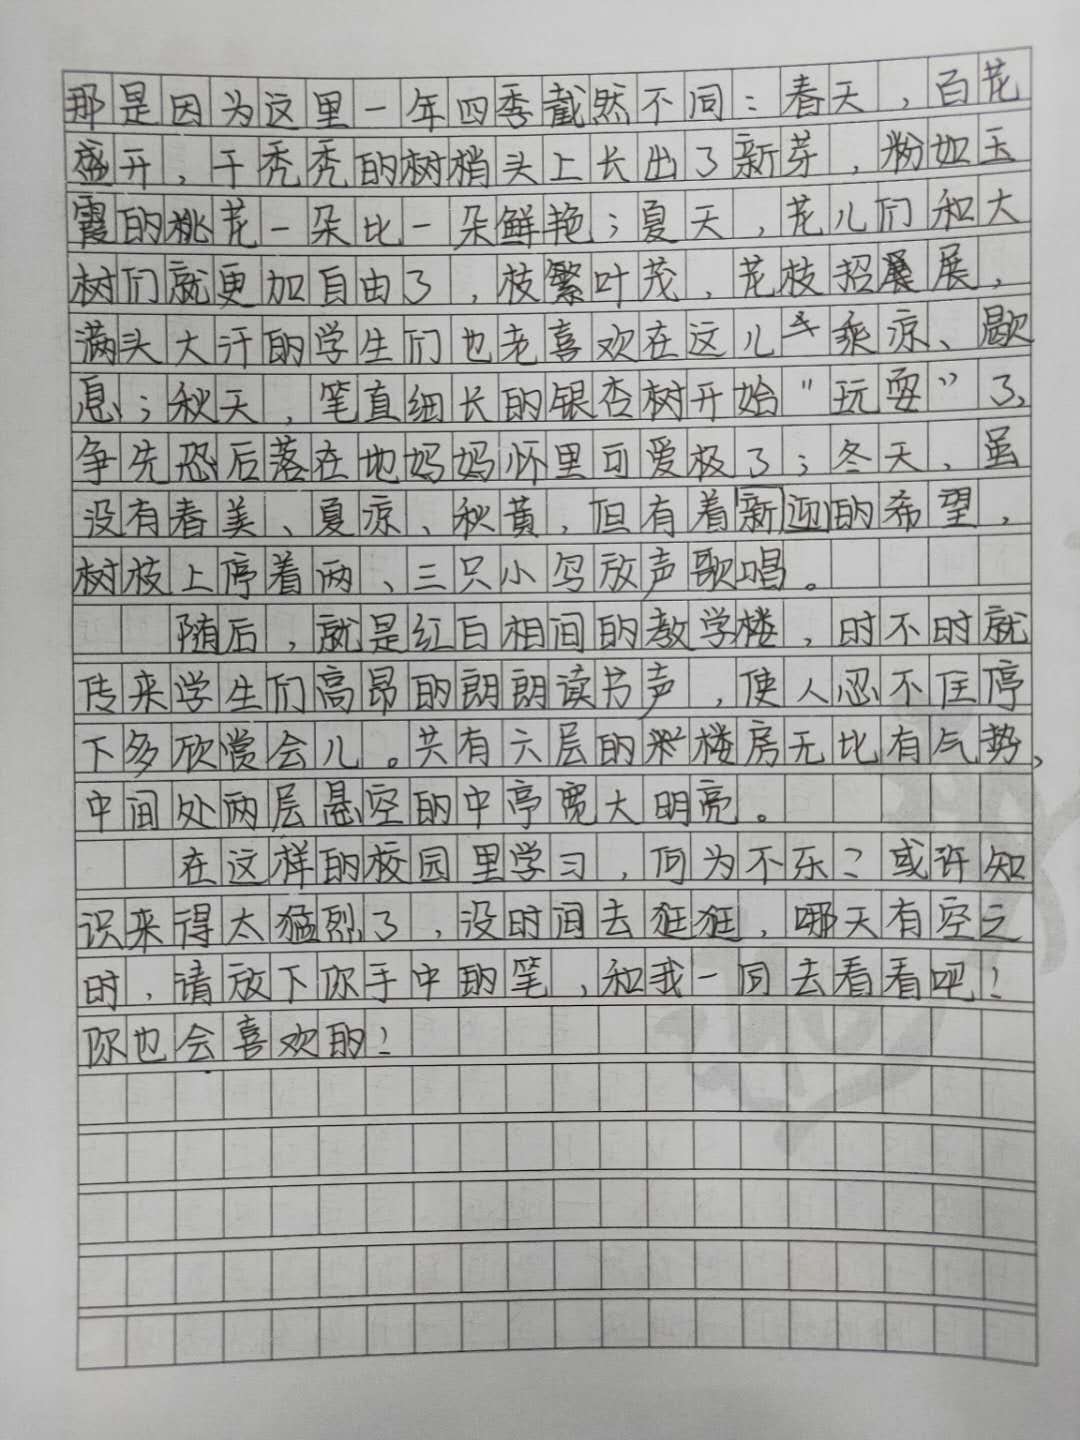 那是因为这里一年四季截然不同：春天，百花
盛开，干秃秃的树梢头上长出了新芽，粉如玉
霞的桃花一朵比一朵鲜艳；夏天，花儿们和大
树们就更加自由了，枝繁叶茂，花枝招展展，
满头大汗的学生们也老喜欢在这儿乘凉、歇
息；秋天，笔直细长的银杏树开始“玩耍”了，
争先恐后落在地妈妈怀里可爱极了；冬天，虽
没有春美、夏凉、秋黄，但有着新迎的希望，
树枝上停着两、三只小鸟放声歌唱。
随后，就是红白相间的教学楼，时不时就
传来学生们高昂的朗朗读书声，使人忍不住停
下多欣赏会儿。共有六层的楼房无比有气势，
中间处两层悬空的中亭宽大明亮。
在这样的校园里学习，何为不乐？或许知
识来得太猛烈了，没时间去逛逛，哪天有空之
时，请放下你手中的笔，和我一同去看看吧！
你也会喜欢的！